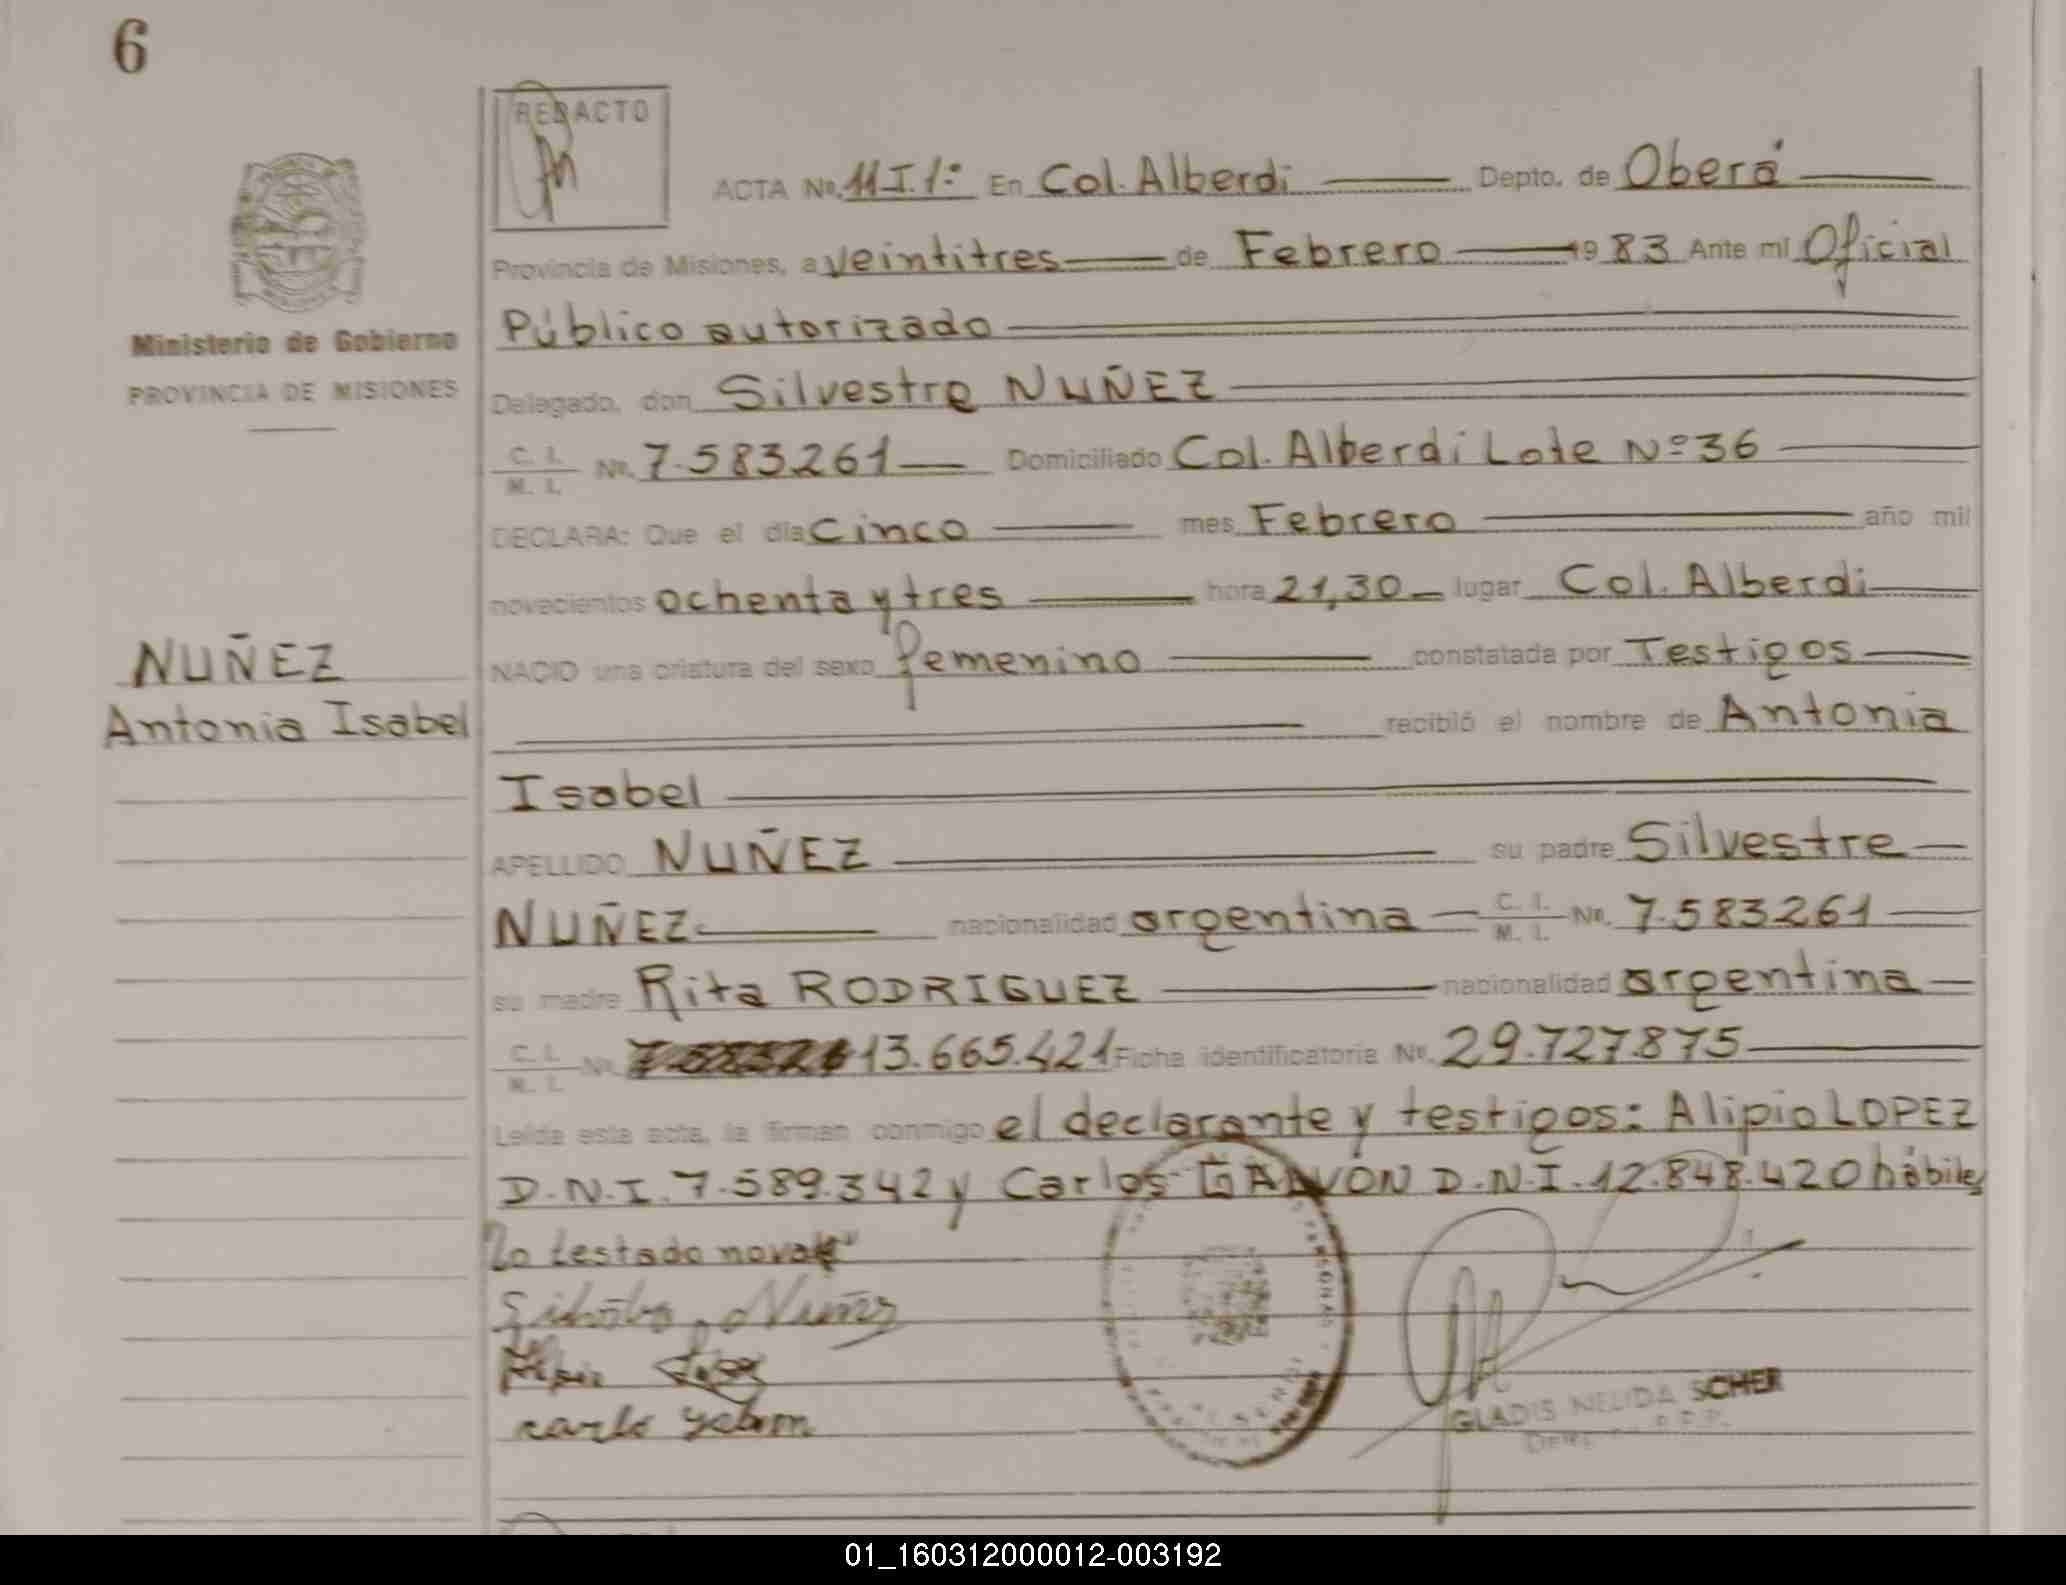 6
REDACTO
ACTA No. 11 I. 1º En Col. Alberdi Depto. de Oberá
Provincia de Misiones, a veintitres de Febrero 19 83 Ante mí Oficial
Ministerio de Gobierno
PROVINCIA DE MISIONES
Público autorizado
Delegado, don Silvestre NUÑEZ
C. I. / M. I. No. 7.583261 Domiciliado Col. Alberdi Lote Nº 36
DECLARA: Que el día Cinco mes Febrero año mil
novecientos ochenta y tres hora 21,30 lugar Col. Alberdi
NUÑEZ
Antonia Isabel
NACIO una criatura del sexo femenino constatada por Testigos
recibió el nombre de Antonia
Isabel
APELLIDO NUÑEZ su padre Silvestre
NUÑEZ nacionalidad argentina C. I. / M. I. No. 7.583261
su madre Rita RODRIGUEZ nacionalidad argentina
C. I. / M. I. No. 13.665.421 Ficha identificatoria No. 29.727.875
Leída esta acta, la firman conmigo el declarante y testigos: Alipio LOPEZ
D.N.I. 7.589.342 y Carlos GALVON D.N.I. 12.848.420 hábiles
Lo testado novale
GLADIS NELIDA SCHER
01_160312000012-003192